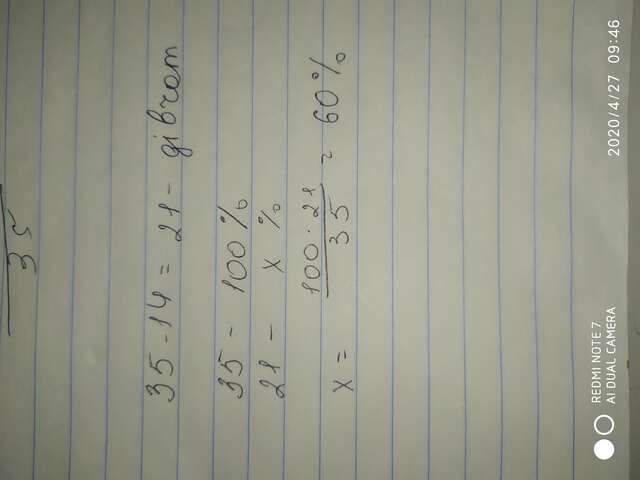 35
35-14=21- qibrom
35 - 100%
21 - x %
x = 100·21 / 35 = 60%
REDMI NOTE 7
AI DUAL CAMERA
2020/4/27 09:46